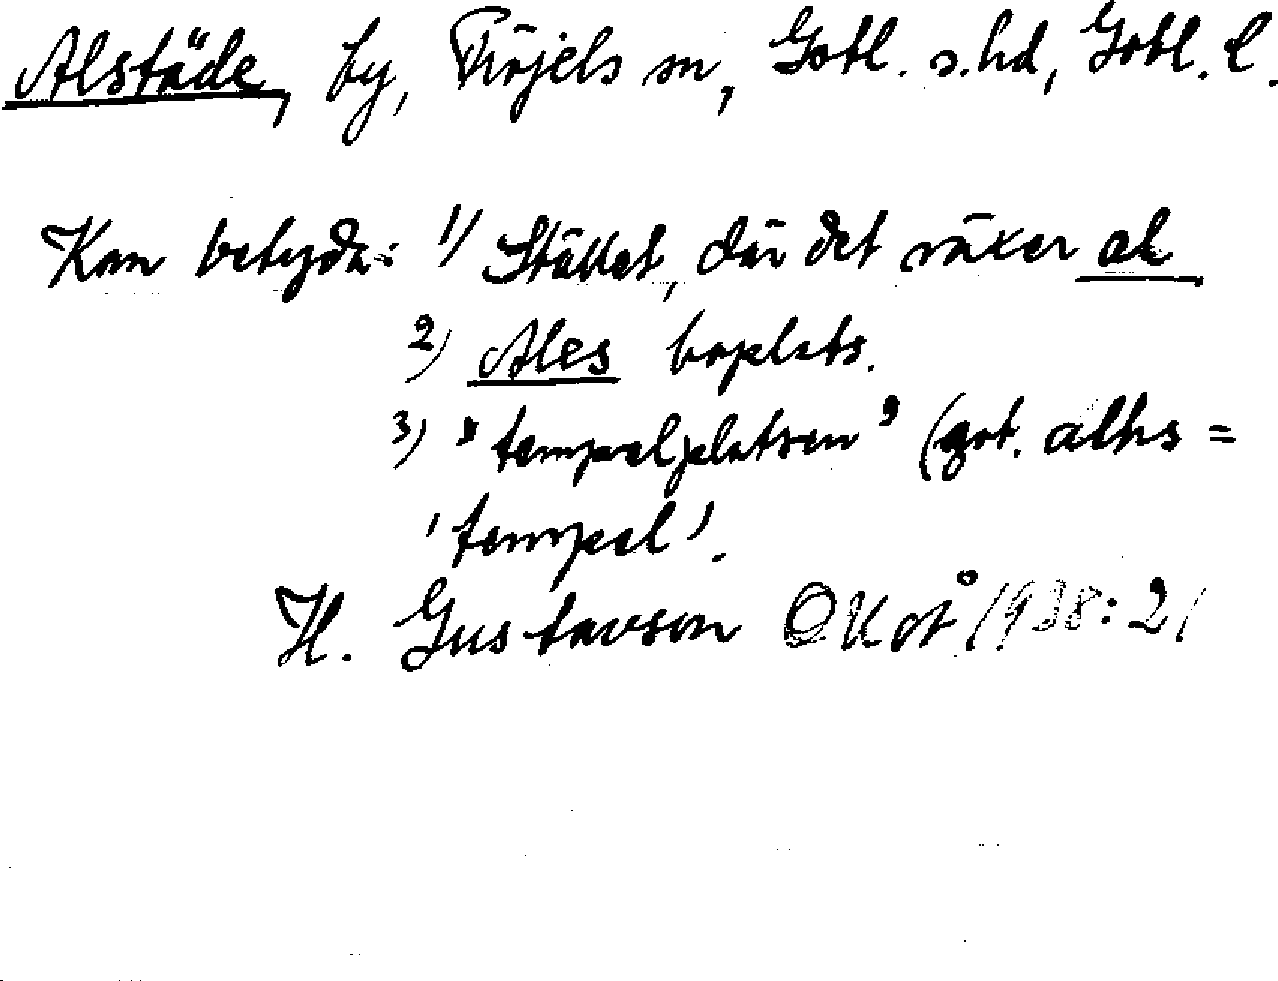 Alstäde, by, Fröjels sn, Gotl. s.hd, Gotl. l.
Kan betyda: 1) Stället, där det växer al
2) Ales boplats.
3) "tempelplatsen" (got. alhs =
'tempel'.
H. Gustavson OKoÅ 1938:21